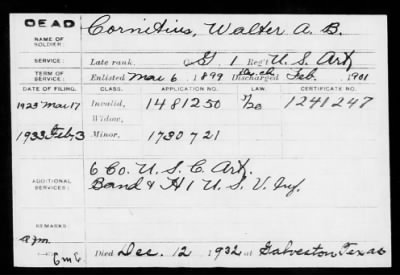 DEAD
NAME OF SOLDIER:
Cornitius, Walter A. B.
SERVICE:
Late rank, G 1 Reg't U.S. Art
TERM OF SERVICE:
Enlisted Mar 6, 1899 Discharged Feb. 1901
DATE OF FILING. CLASS. APPLICATION NO. LAW. CERTIFICATE NO.
1923 Mar 17 Invalid, 1481250 1241247
Widow,
1933 Feb 3 Minor, 1730721
ADDITIONAL SERVICES:
6 Co. U.S.C. Art.
Band & H 1 U.S.V. Inf.
REMARKS:
Died Dec. 12, 1932 at Galveston Texas